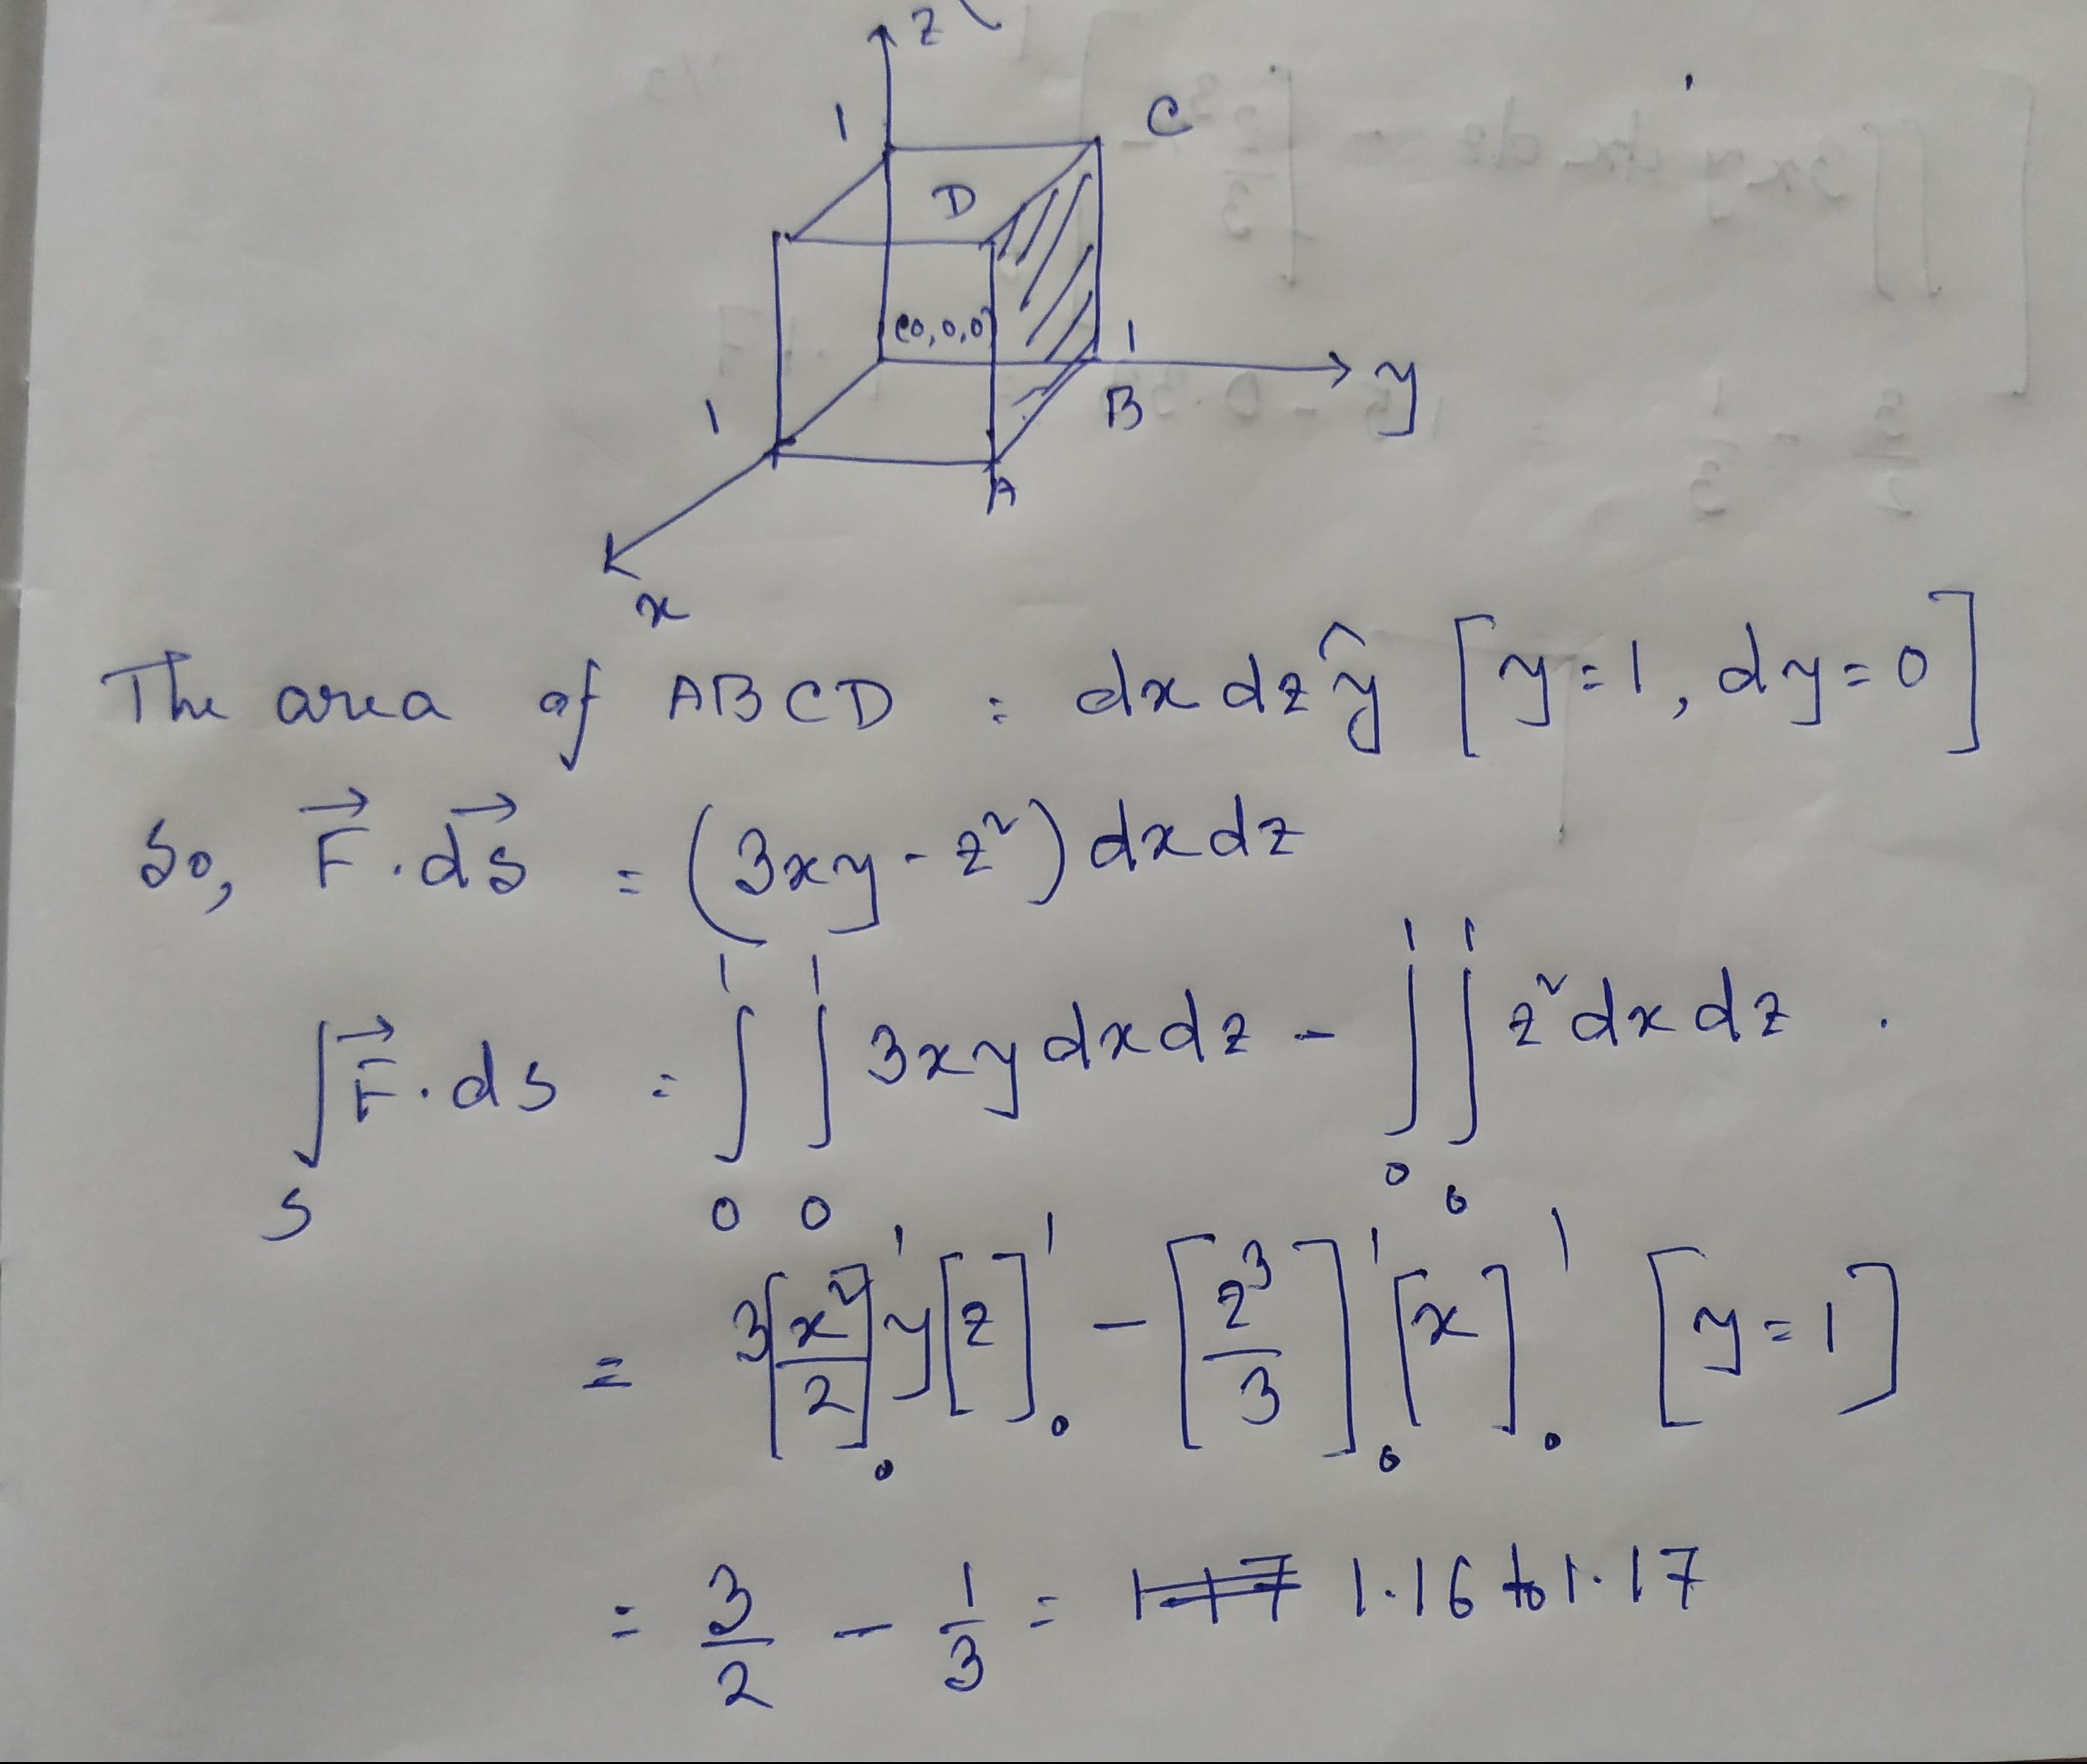 z
1
C
D
(0,0,0)
1
y
1
B
A
x
The area of ABCD = dx dz ŷ [y=1, dy=0]
So, F⃗ . ds⃗ = (3xy - z²) dx dz
∫_S F⃗ . ds = ∫_0^1 ∫_0^1 3xy dx dz - ∫_0^1 ∫_0^1 z² dx dz .
= 3[x²/2]_0^1 y[z]_0^1 - [z³/3]_0^1 [x]_0^1 [y=1]
= 3/2 - 1/3 = 1.16 to 1.17